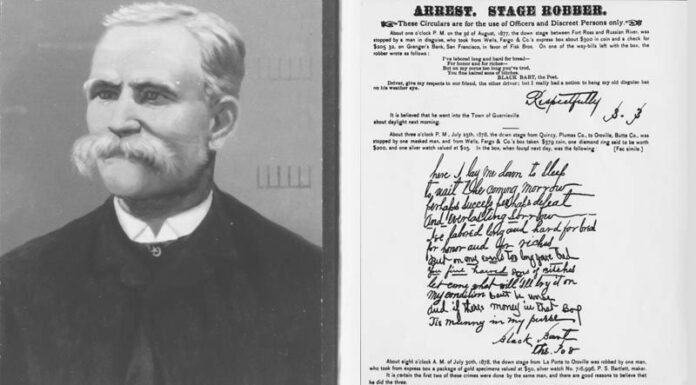 ARREST. STAGE ROBBER.
These Circulars are for the use of Officers and Discreet Persons only.
About one o'clock P. M. on the 3d of August, 1877, the down stage between Fort Ross and Russian River, was
stopped by a man in disguise, who took from Wells, Fargo & Co.'s express box about $300 in coin and a check for
$205 32, on Granger's Bank, San Francisco, in favor of Fisk Bros. On one of the way-bills left with the box, the
robber wrote as follows:
"I've labored long and hard for bread—
For honor and for riches—
But on my corns too long you've trod,
You fine haired sons of bitches.
BLACK BART, the Poet.
Driver, give my respects to our friend, the other driver; but I really had a notion to hang my old disguise hat
on his weather eye.
Respectfully B. B
It is believed that he went into the Town of Guerneville
about daylight next morning.
About three o'clock P. M., July 25th, 1878, the down stage from Quincy, Plumas Co., to Oroville, Butte Co., was
stopped by one masked man, and from Wells, Fargo & Co.'s box taken $379 coin, one diamond ring said to be worth
$200, and one silver watch valued at $25. In the box, when found next day, was the following: [Fac simile.]
here I lay me down to Sleep
to wait the coming morrow
perhaps success perhaps defeat
And everlasting Sorrow
I've labored long and hard for bred
for honor and for riches
But on my corns too long yove tred
You fine haired Sons of Bitches
let come what will I'll try it on
My condition can't be worse
and if theres money in that Box
Tis munny in my purse
Black Bart
the Po8
About eight o'clock A. M. of July 30th, 1878, the down stage from La Porte to Oroville was robbed by one man,
who took from express box a package of gold specimens valued at $50, silver watch No. 716,996, P. S. Bartlett, maker.
It is certain the first two of these crimes were done by the same man, and there are good reasons to believe that
he did the three.